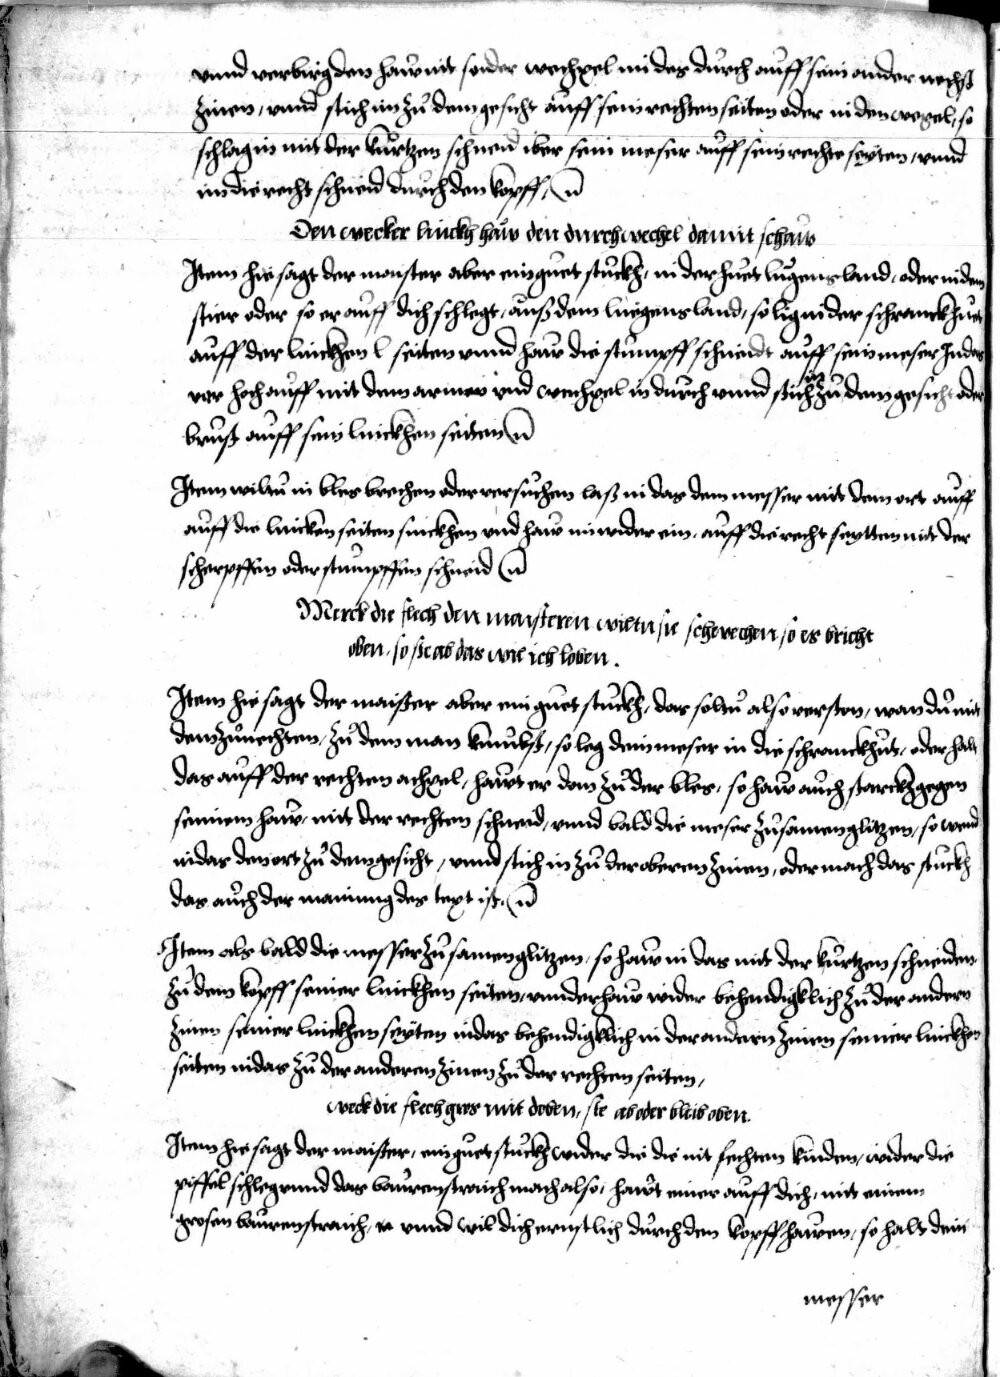 vnnd verbirg den haw mit sonder wechxel in des durch auff sein ander nechst
zinen, vnnd stich im zů dem gesicht auff sein rechten seiten oder in den wegel, so
schlag in mit der kůrtzen schneid iber sein meser auff sein rechte seyten, vnnd
im die recht schneid durch den kopff,
Den wecker linckh haw den durchwechel damit schaw
Item hie sagt der maister aber ein guet stuckh, in der huet lugensland, oder in dem
stier oder so er auff dich schlegt, auß dem luegensland, so lig in der schranckhuet
auff der linckhen l seiten vnnd haw die stumpff schneidt auff sein meser Indes
var hoch auff mit dem armen vnd wechxel in durch vnnd stich in zů dem gesicht oder
brust auff sein linckhen seiten
Item wiltu in bles brechen oder versuchen laß in das dem messer mit dem ort auff
auff die lincken seiten sinckhen vnd haw im wider ein, auff die recht seytten mit der
scherpffen oder stumpffen schneid
Merck die flech den maisteren wiltu sie schwechen, so es bricht
oben, so ste ab das wil ich loben.
Item hie sagt der maister aber ein guet stuckh, das soltu also verston, wan dů mit
dem zůuechten, zů dem man kumbst, so leg dein meser in die schranckhůt, oder halt
das auff der rechten achxel, hawt er dan zů der bles, so haw auch starckh gegen
seinem haw, mit der rechten schneid, vnnd bald die meser zůsamen glitzen, so wend
in das den ort zů dem gesicht, vnnd stich in zů der oberen zinen, oder mach das stuckh
das auch der mainung des text ist,
Item als bald die messer zůsamen glitzen, so haw in das mit der kůrtzen schneiden
zů dem kopff seiner linckhen seiten, vnnder haw wider behendigklich zů der andern
zinen seiner linckhen seyten indas behendigklich in der andern zinen seiner linckhen
seiten indas zů der anderen zinen zů der rechten seiten,
weck die flech gros mit doben, ste ab oder bleib oben.
Item hie sagt der maister, ein guet stuckh wider die die nit fechten kinden, wider die
piffel schleg vnnd das bauren straich mach also, hawt einer auff dich, mit einem
grosen bauren straich, vnnd wil dich ernstlich durch den kopff hawen, so halt dein
messer